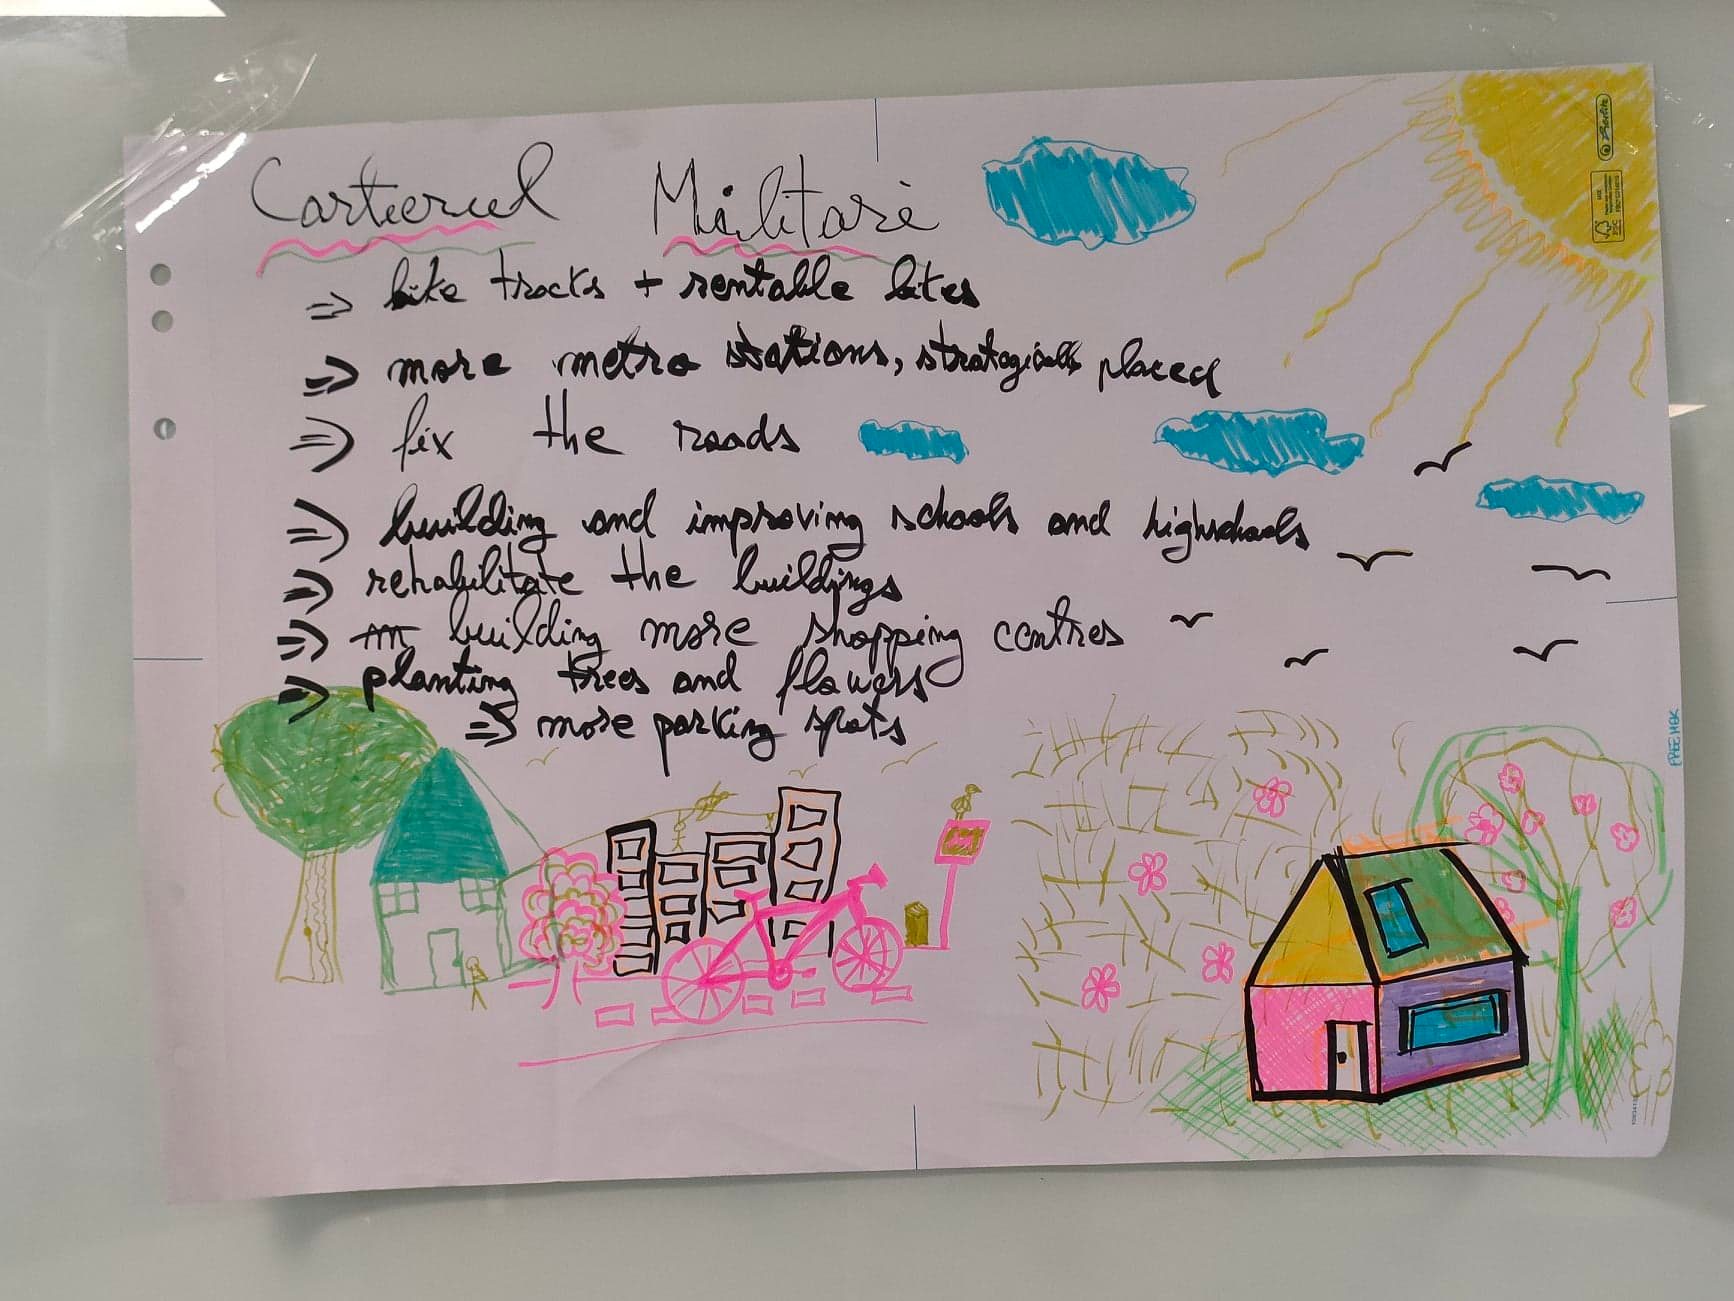 Cartierul Militari
=> bike tracks + rentable bikes
=> more metro stations, strategically placed
=> fix the roads
=> building and improving schools and highschools
=> rehabilitate the buildings
=> building more shopping centres
=> planting trees and flowers
=> more parking spots